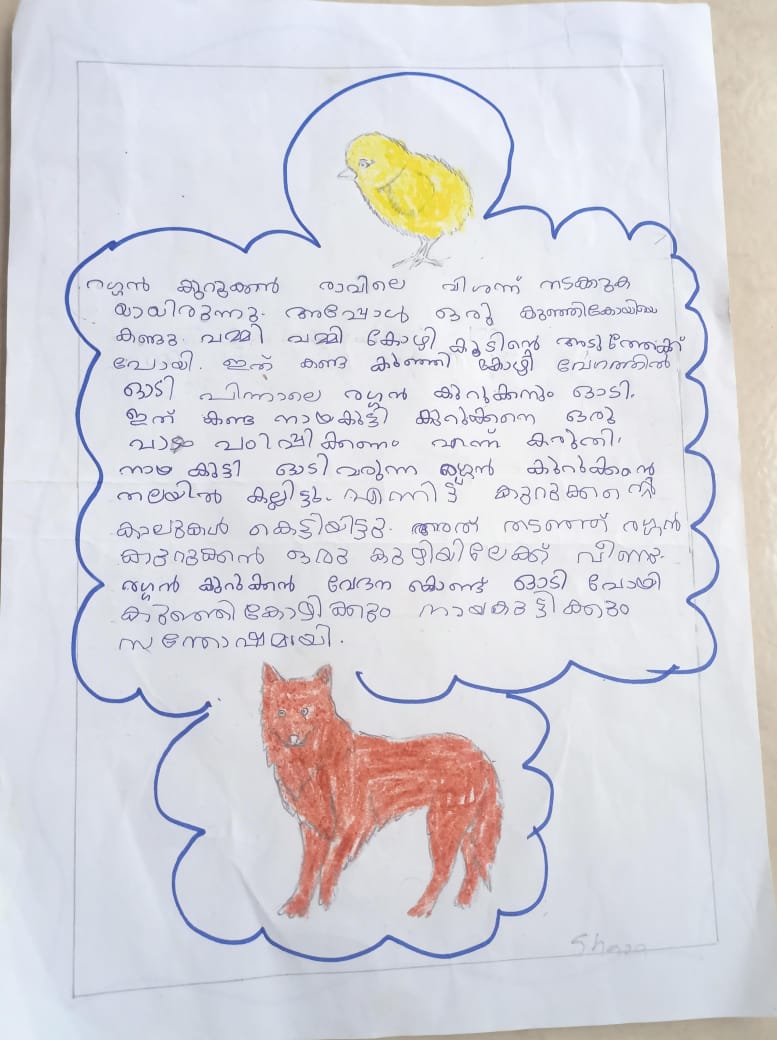 രഗ്ഗൻ കുറുക്കൻ രാവിലെ വിശന്ന് നടക്കുക
യായിരുന്നു. അപ്പോൾ ഒരു കുഞ്ഞികോയിയെ
കണ്ടു. പമ്മി പമ്മി കോഴി കൂടിൻ്റെ അടുത്തേക്ക്
പോയി. ഇത് കണ്ട കുഞ്ഞി കോഴി വേഗത്തിൽ
ഓടി പിന്നാലെ രഗ്ഗൻ കുറുക്കനും ഓടി.
ഇത് കണ്ട നായകുട്ടി കുറുക്കനെ ഒരു
പാഠം പഠിപ്പിക്കണം എന്ന് കരുതി.
നായ കുട്ടി ഓടി വരുന്ന രഗ്ഗൻ കുറുക്കൻ്റെ
തലയിൽ കല്ലിട്ടു. എന്നിട്ട് കുറുക്കൻ്റെ
കാലുകൾ കെട്ടിയിട്ടു. അത് തടഞ്ഞ് രഗ്ഗൻ
കുറുക്കൻ ഒരു കുഴിയിലേക്ക് വീണു.
രഗ്ഗൻ കുറുക്കൻ വേദന കൊണ്ട് ഓടി പോയി
കുഞ്ഞികോഴിക്കും നായകുട്ടിക്കും
സന്തോഷമായി.